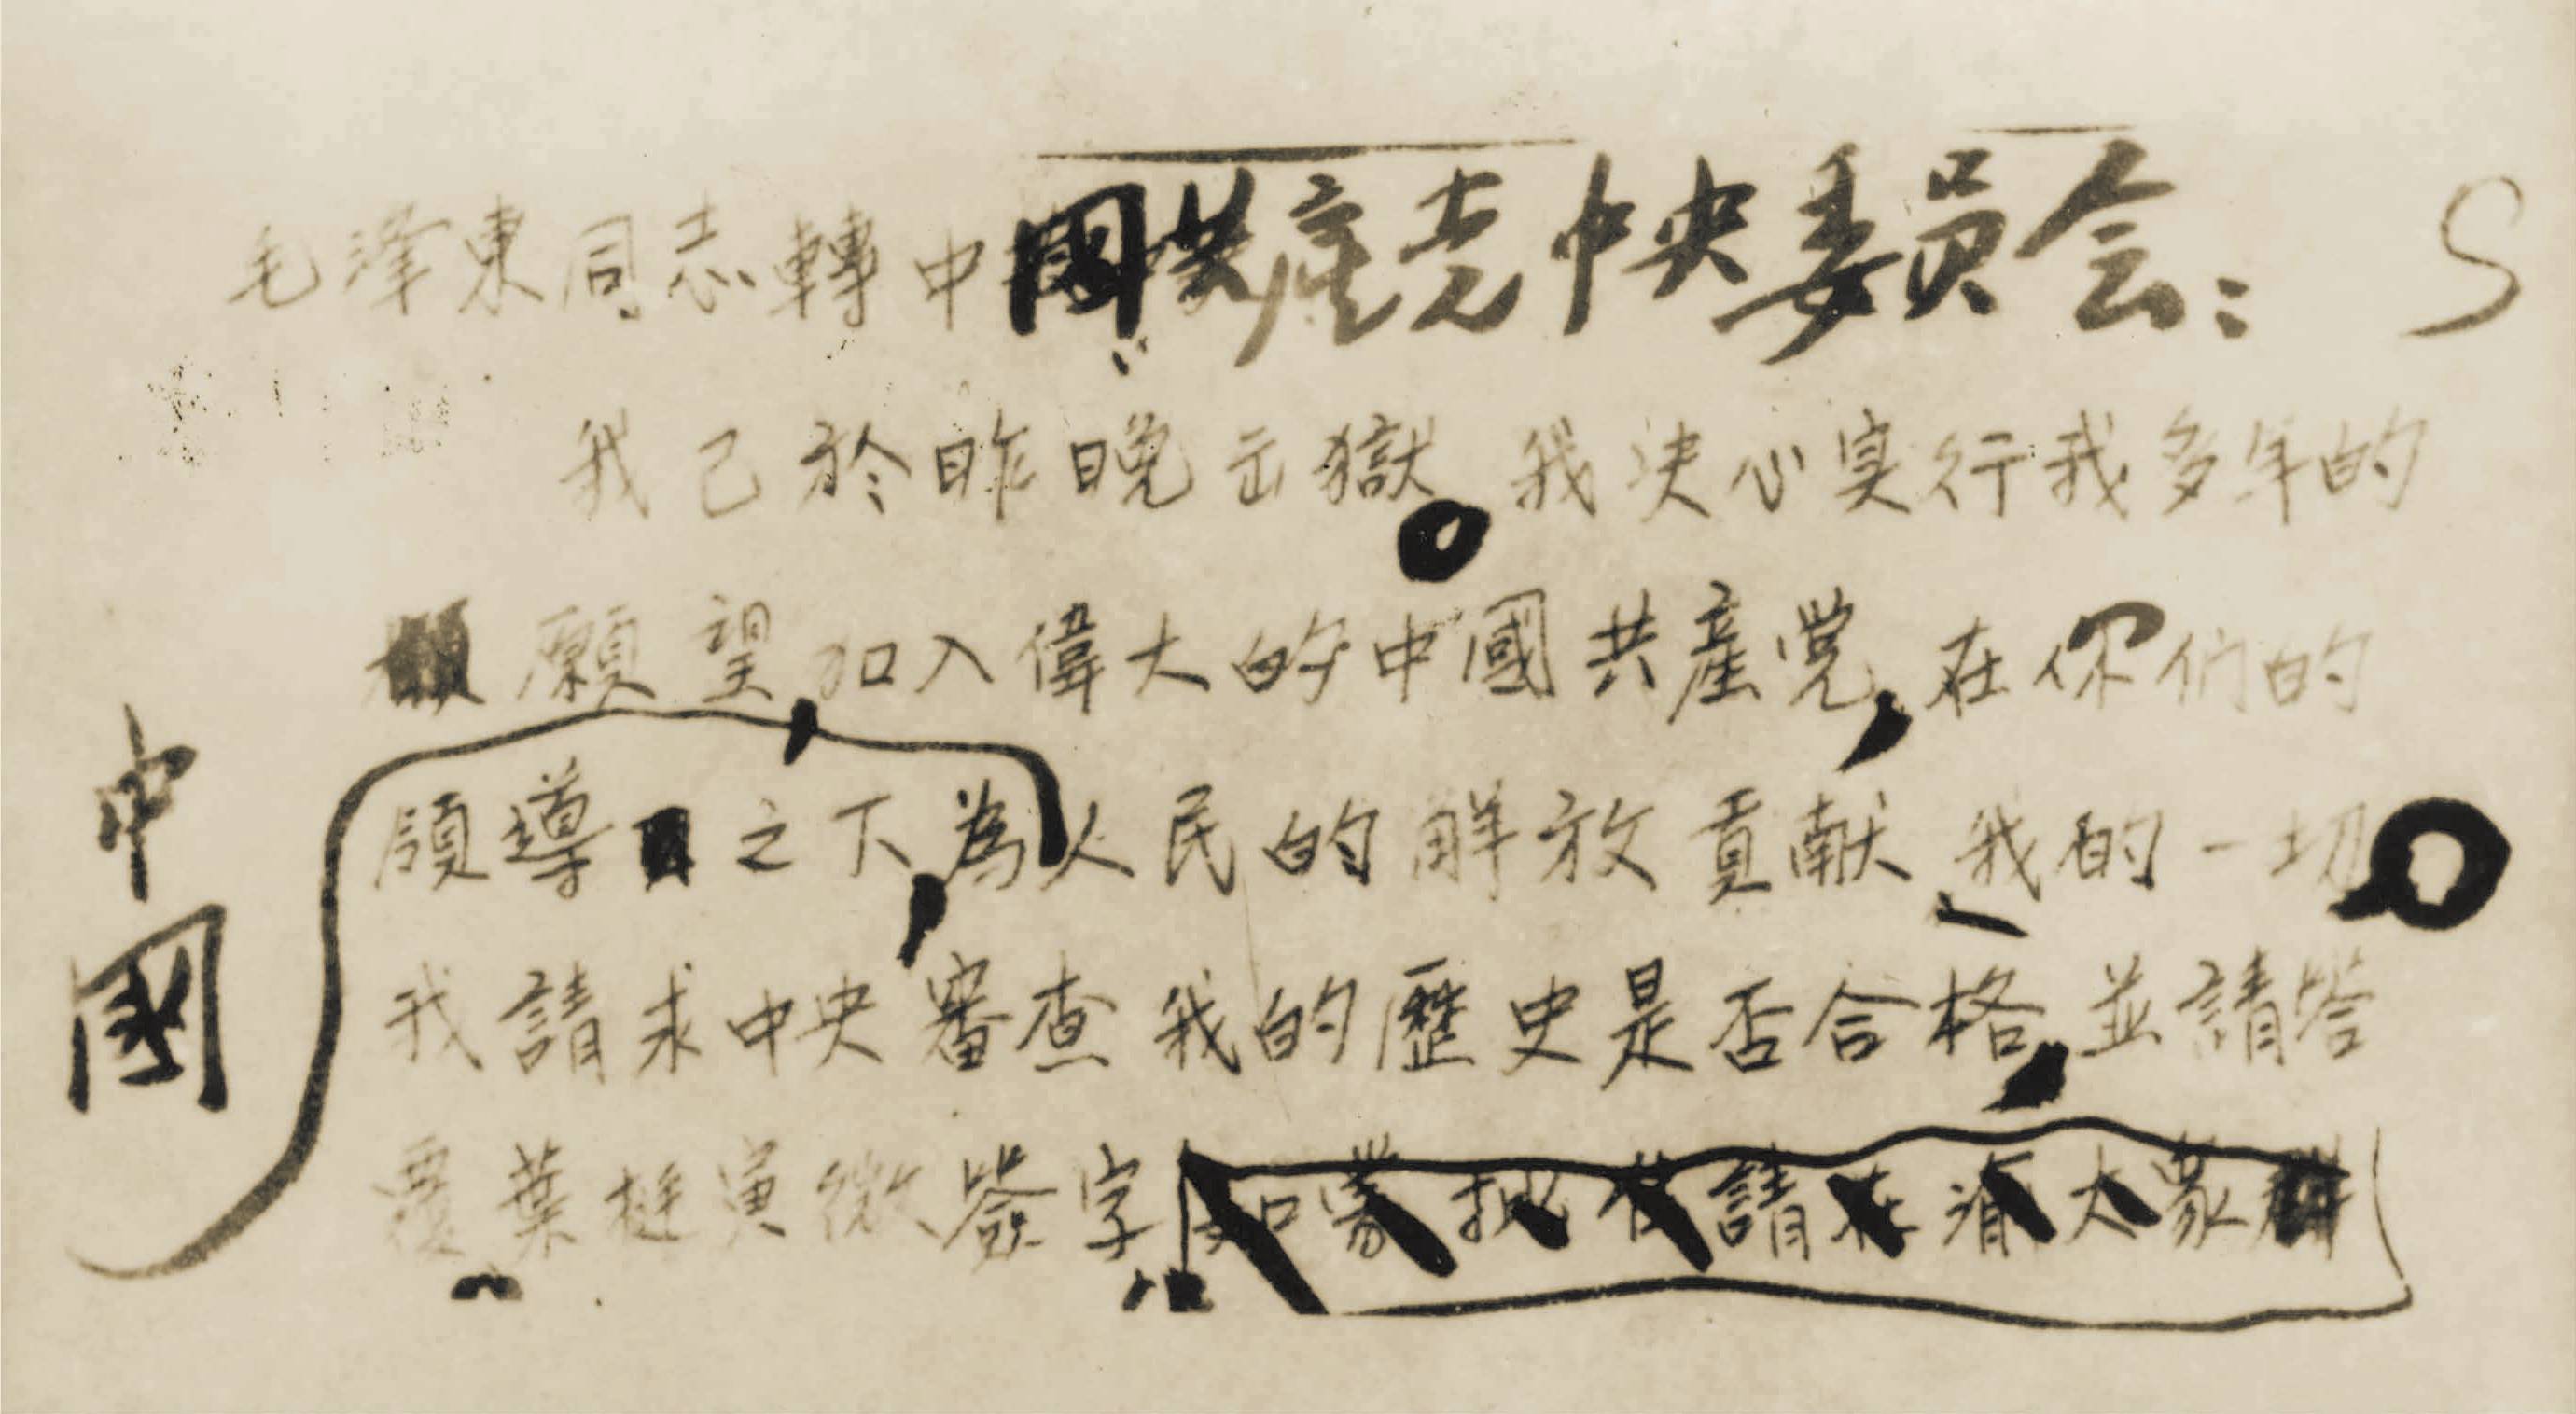 毛澤東同志轉中國共產党中央委員会：
我已於昨晚出獄。我決心实行我多年的
願望，加入偉大的中國共產党，在你们的
領導之下，為中國人民的解放貢献我的一切。
我請求中央審查我的歷史是否合格，並請答
覆。葉挺寅微簽字